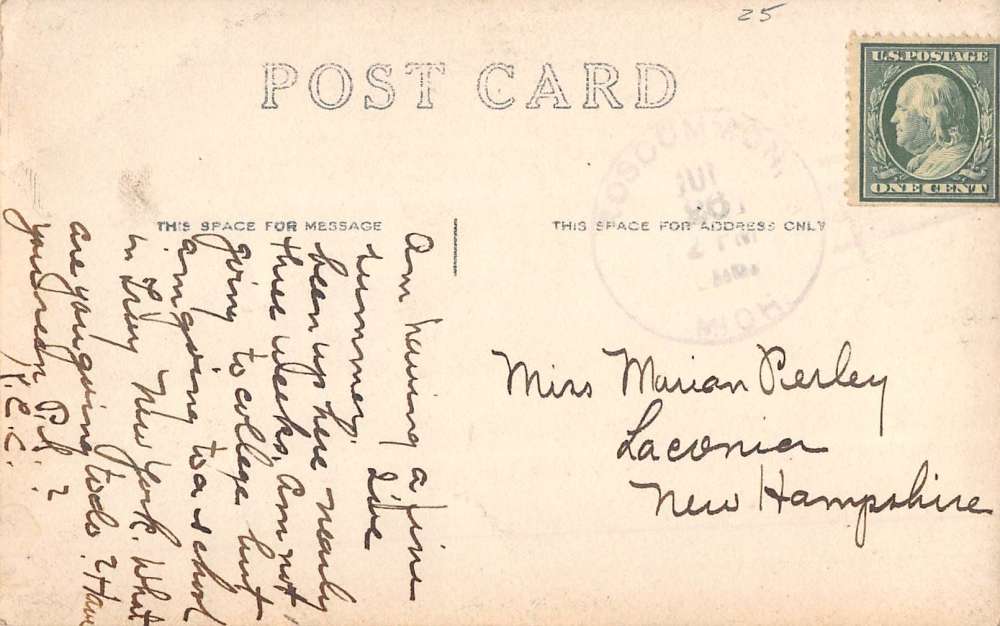 25
U.S. POSTAGE
ONE CENT
POST CARD
ROSCOMMON,
JUL
2 PM
MICH.
THIS SPACE FOR MESSAGE
THIS SPACE FOR ADDRESS ONLY
Am having a fine
summer. I've
been up here nearly
three weeks. Am not
going to college but
am going to a school
in Troy New York. What
are you going to do? Have
you been
K.C.C.
Miss Marian Perley
Laconia
New Hampshire